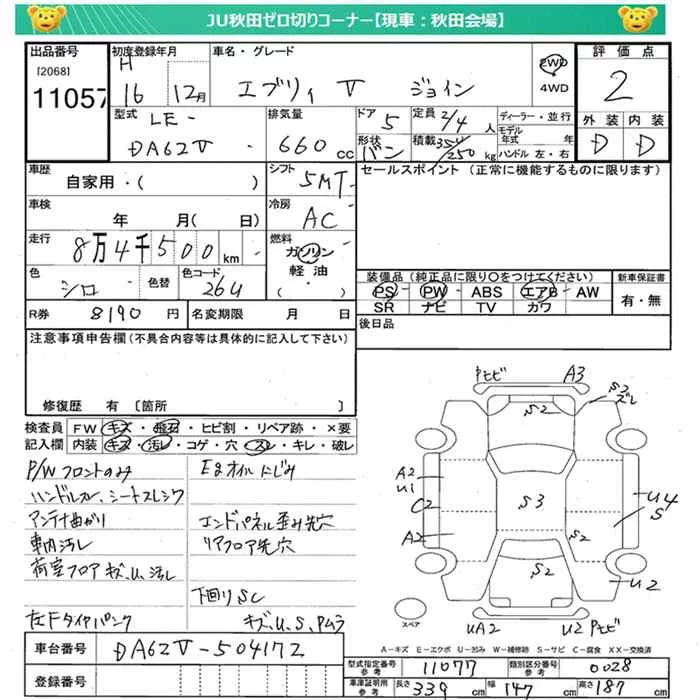 JU秋田ゼロ切りコーナー【現車：秋田会場】
出品番号 初度登録年月 車名・グレード 評価点
[2068] H 2WD
11057 16 12月 エブリィ V ジョイン 4WD 2
型式 LE- 排気量 ドア 5 定員 2/4 人 ディーラー・並行 外装 内装
DA62V 660 cc 形状 バン 積載 350/250 kg モデル年式 年 D D
ハンドル 左・右
車歴 自家用・( ) シフト 5MT セールスポイント（正常に機能するものに限ります）
車検 年 月( 日) 冷房 AC
走行 8万4千500km 燃料 ガソリン
軽油
( )
色 シロ 色替 色コード 26U 装備品（純正品に限り〇をつけてください） 新車保証書
PS PW ABS エアB AW 有・無
SR ナビ TV カワ
R券 8190 円 名変期限 月 日 後日品
注意事項申告欄（不具合内容等は具体的に記入して下さい）
修復歴 有〔箇所 〕
検査員 FW キズ・飛石・ヒビ割・リペア跡・×要
記入欄 内装 キズ・汚レ・コゲ・穴・スレ・キレ・破レ
P/Wフロントのみ Egオイルにじみ
ハンドルスレ、シートスレシワ
アンテナ曲がり エンドパネル歪み先穴
車内汚レ リアフロア先穴
荷室フロアキズ、U、汚レ
下回りSC
左Fタイヤパンク キズ、U、S、Pムラ
Pヒビ A3
S2 S2 ズレ
A2
U1
C2 S3 U4
S
A2 S2
S2 U2
スペア UA2 U2 Pヒビ
A-キズ E-エクボ U-凹み W-補修跡 S-サビ C-腐食 XX-交換済
車台番号 DA62V-504172
登録番号
型式指定番号 参考 11077 類別区分番号 参考 0028
車庫証明用 参考 長さ 339 cm 幅 147 cm 高さ 187 cm